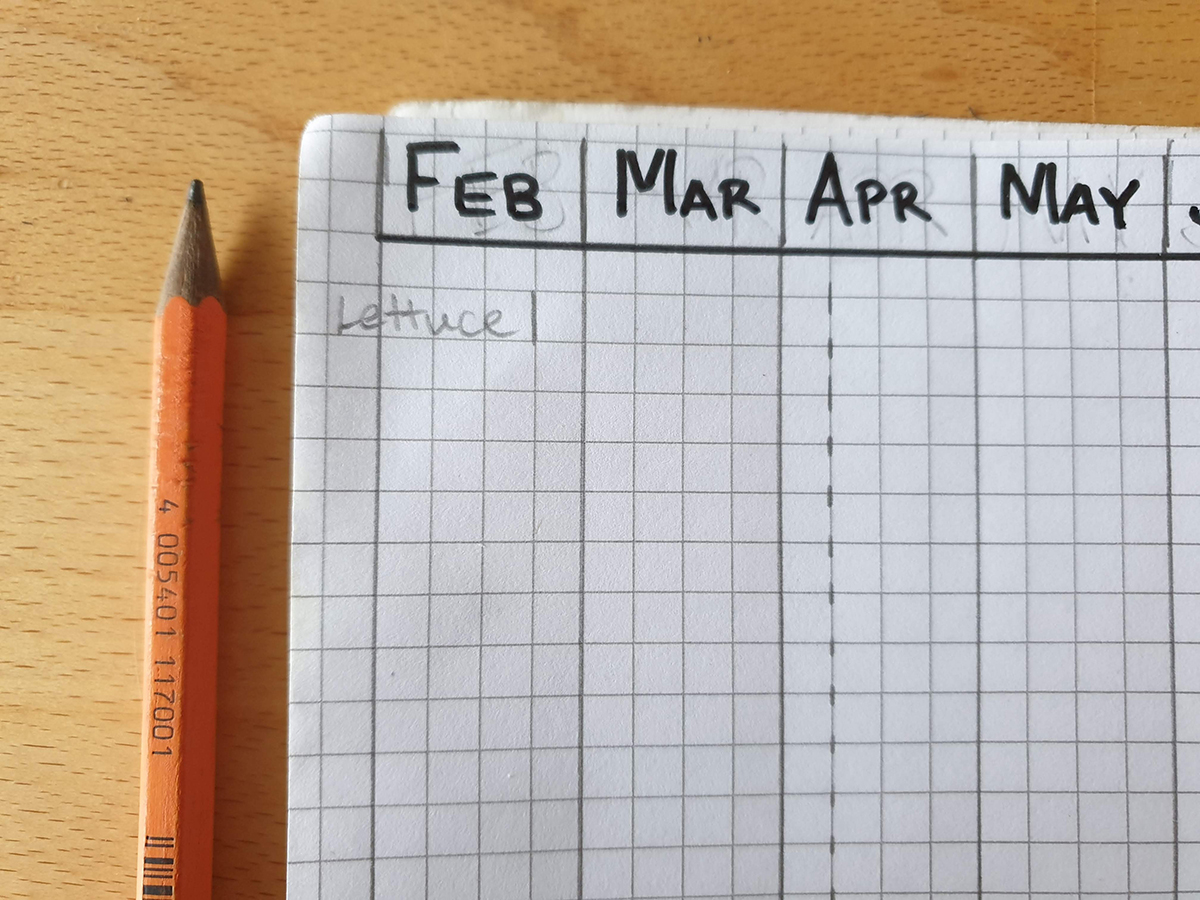 FEB MAR APR MAY
Lettuce
4 005401 117001